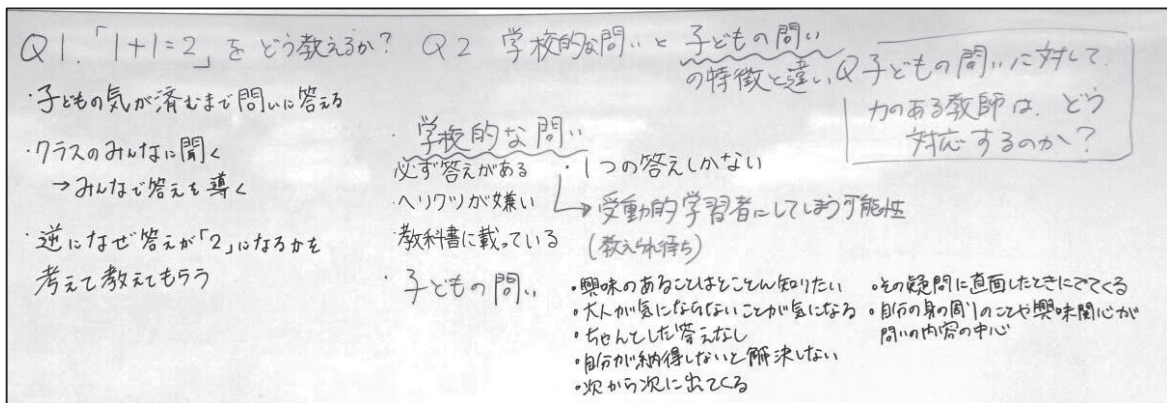 Q1.「1+1=2」をどう教えるか?
・子どもの気が済むまで問いに答える
・クラスのみんなに聞く
→みんなで答えを導く
・逆になぜ答えが「2」になるかを
考えて教えてもらう
Q2 学校的な問いと子どもの問い
の特徴と違い
・学校的な問い
必ず答えがある
・ヘリクツが嫌い
・教科書に載っている
・1つの答えしかない
→受動的学習者にしてしまう可能性
(教えられ待ち)
・子どもの問い
・興味のあることはとことん知りたい
・大人が気にならないことが気になる
・ちゃんとした答えなし
・自分が納得しないと解決しない
・次から次に出てくる
・その疑問に直面したときにでてくる
・自分の身の周りのことや興味関心が
問いの内容の中心
Q子どもの問いに対して
力のある教師は、どう
対応するのか?